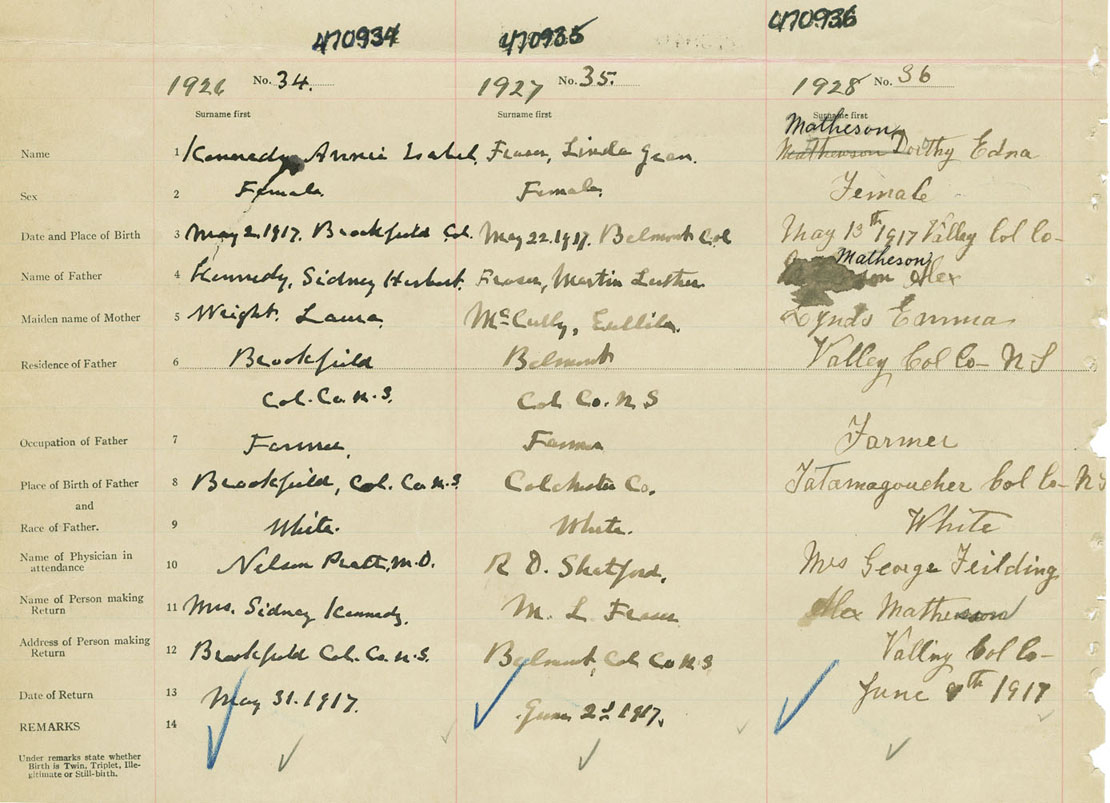 470934 470935 470936
1926 No. 34. 1927 No. 35. 1928 No. 36
Surname first Surname first Surname first
Matheson,
Name 1 Kennedy, Annie Isabel, Fraser, Linda Jean. Mathewson Dorothy Edna
Sex 2 Female Female. Female
Date and Place of Birth 3 May 2. 1917. Brookfield Col. May 22. 1917. Belmont Col May 13th 1917 Valley Col Co-
Matheson,
Name of Father 4 Kennedy, Sidney Herbert. Fraser, Martin Luther. son Alex
Maiden name of Mother 5 Wright. Laura. McCully, Lynds Emma
Residence of Father 6 Brookfield Belmont Valley Col Co- N S
Col. Co. N. S. Col Co. N. S
Occupation of Father 7 Farmer. Farmer Farmer
Place of Birth of Father 8 Brookfield, Col. Co. N. S. Colchester Co. Tatamagoucher Col Co- N S
and
Race of Father. 9 White. White. White
Name of Physician in
attendance 10 Nelson Pratt, M.D. R. D. Shatford, Mrs George Feilding
Name of Person making
Return 11 Mrs. Sidney Kennedy. M. L. Fraser Alex Matheson
Address of Person making
Return 12 Brookfield Col. Co. N. S. Belmont, Col Co N. S Valley Col Co-
Date of Return 13 May 31. 1917. June 2d 1917. June th 1917
REMARKS 14
Under remarks state whether
Birth is Twin, Triplet, Ille-
gitimate or Still-birth.